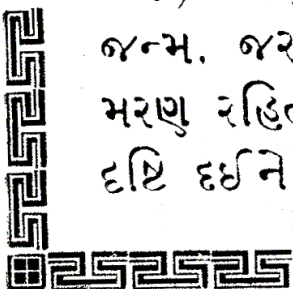 જન્મ, જરા
મરણ રહિત
દષ્ટિ દઈને